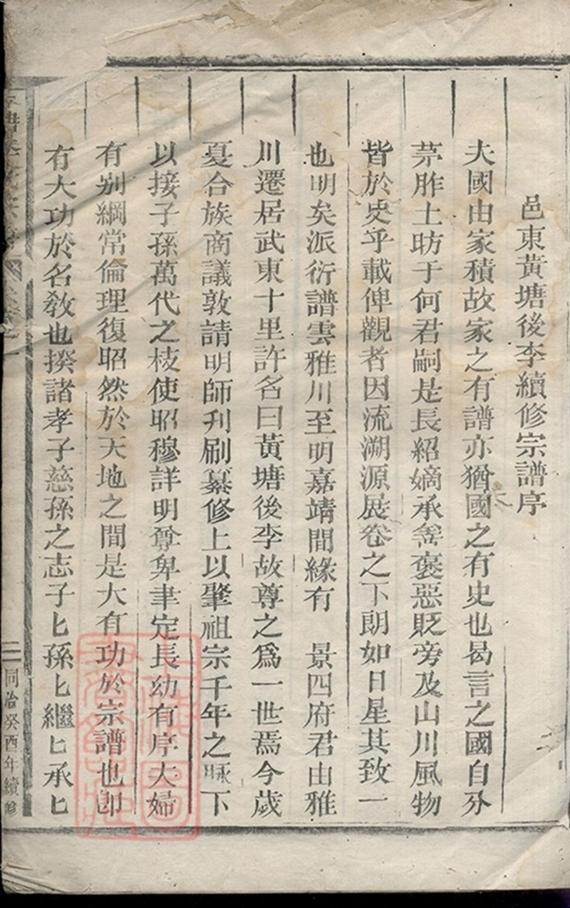 邑東黃塘後李續修宗譜序
夫國由家積故家之有譜亦猶國之有史也曷言之國自分
茅胙土昉于何君嗣是長紹嫡承善褒惡貶旁及山川風物
皆於史乎載俾觀者因流溯源展卷之下朗如日星其致一
也明矣派衍譜雲雅川至明嘉靖間緣有 景四府君由雅
川遷居武東十里許名曰黃塘後李故尊之為一世焉今歲
夏合族商議敦請明師刋刷纂修上以肇祖宗千年之脉下
以接子孫萬代之枝使昭穆詳明尊卑聿定長幼有序夫婦
有别綱常倫理復昭然於天地之間是大有功於宗譜也即
有大功於名教也揆諸孝子慈孫之志子匕孫匕繼匕承匕
二 同治癸酉年續修